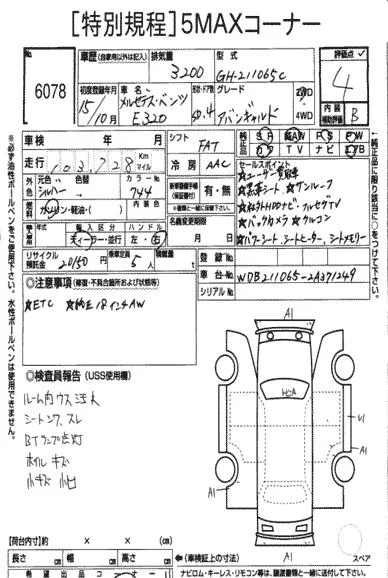 [特別規程]5MAXコーナー
No.
6078
車歴(自家用以外は記入)
排気量
型式
評価点
3200
GH-211065C
4
初度登録年月
車名
ドア数
グレード
2WD
4WD
15年
10月
メルセデス・ベンツ
E320
アバンギャルド
内装
補助評価
B
車検 年 月
シフト
FAT
純正品
SR AW PS PW
カワ TV ナビ エアB
走行
103,728
Km
マイル
冷房
AAC
セールスポイント
☆ユーザー買取車
☆黒革シート ☆サンルーフ
外色
元色
シルバー
色替
カラーNo.
744
有・無
☆社外HDDナビ フルセグTV
燃料
ガソリン・軽油・( )
内装色
☆バックカメラ ☆クルコン
名義変更期限
月 日
輸入車
輸入区分
ハンドル
ディーラー・並行
左・右
☆パワーシート、シートヒーター、シートメモリー
リサイクル
預託金
20150
円
乗車定員
5
人
積載量
t
登録No.
車台No.
WDB211065-2A371249
シリアルNo.
◎注意事項(修復・不具合箇所および状態等)
☆ETC ☆純正18インチAW
◎検査員報告(USS使用欄)
ルーム内ウス汚レ
シートスレ
BTランプ点灯
ホイルキズ
小キズ 小凹
A1
HCA
V1
A1
A1
A1
スペア
[荷台内寸] × × (cm)
長さ cm
幅 cm
高さ cm
⇐(車検証上の寸法)
希望出品コーナー
ナビロム・キーレス・リモコン等は、譲渡書類と一緒に送付して下さい。
※必ず油性ボールペンをご使用下さい。水性ボールペンは使用できません。
純正品に限り該当に○をつけて下さい。